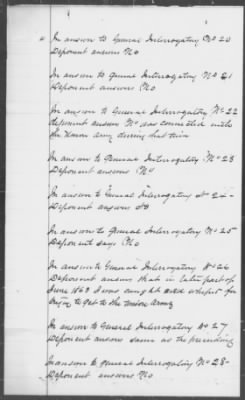 In answer to General Interrogatory No 20
Deponent answers No
In answer to General Interrogatory No 21
Deponent answers No
In answer to General Interrogatory No 22
deponent answers No was connected with
the Union Army during that time
In answer to General Interrogatory No 23
Deponent answers No
In answer to General Interrogatory No 24
Deponent answers No
In answer to General Interrogatory No 25
Deponent says No
In answer to General Interrogatory No 26
Deponent answers that in later part of
June 1863 I was caught and whiped for
trying to get to the Union Army
In answer to General Interrogatory No 27
Deponent answers same as the preceding
In answer to general Interrogatory No 28
Deponent answers No